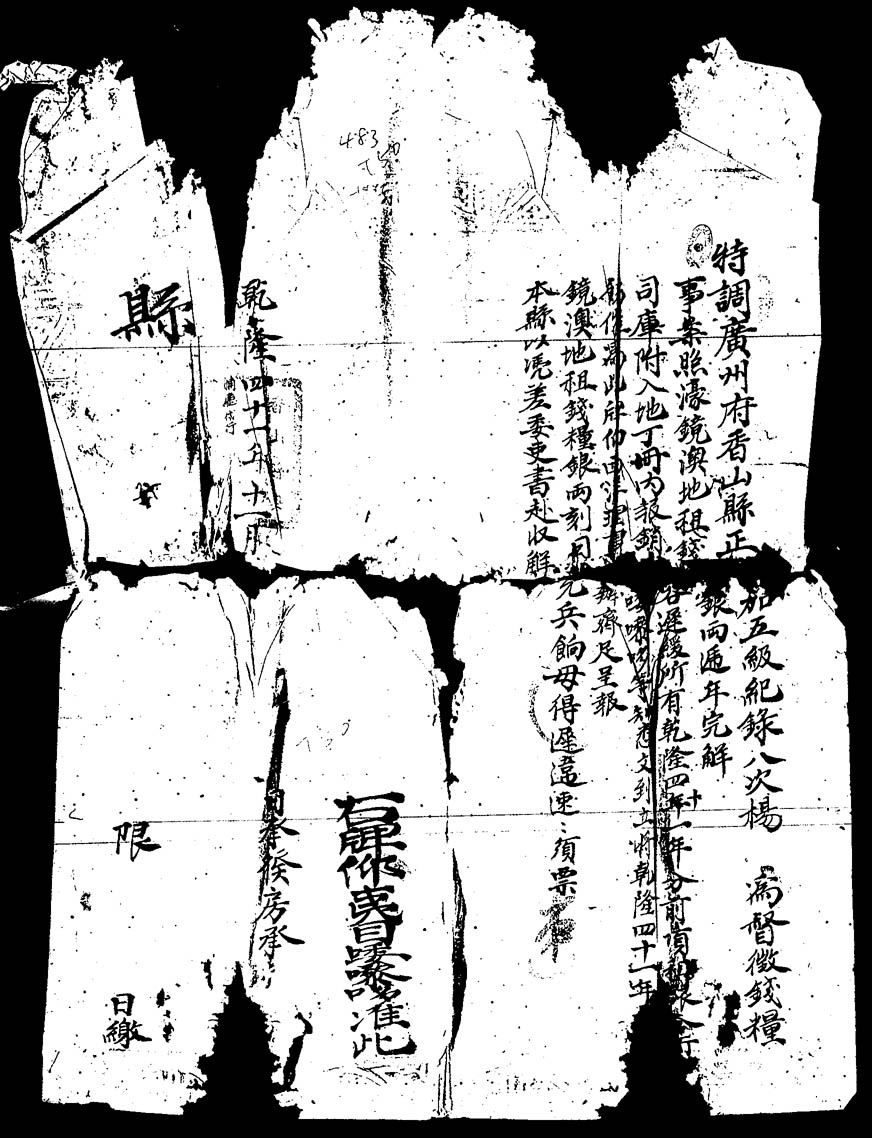 特調廣州府香山縣正加五級紀錄八次楊 為督徵錢糧
事案照濠鏡澳地租錢銀兩遞年完解
司庫附入地丁冊內報銷容遲緩所有乾隆四十一年分前項
為此牌仰理事嚟哆等知悉文到立將乾隆四十一年
鏡澳地租錢糧銀兩刻日辦齊足呈報
本縣以憑差委吏書赴收解充兵餉毋得遲違速〻須票
右牌仰夷目㗭嚟哆准此
乾隆四十一年十一月
承發房承
縣 限 日繳
483